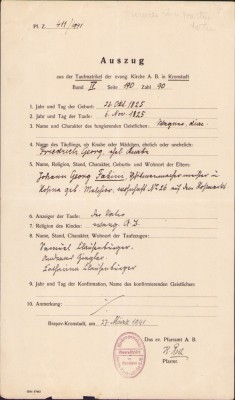 Pl. Z. 411/1941
Auszug
aus der Taufmatrikel der evang. Kirche A. B. in Kronstadt
Band IV Seite 190 Zahl 90
1. Jahr und Tag der Geburt: 27. Okt. 1825
2. Jahr und Tag der Taufe: 6. Nov. 1825
3. Name und Charakter des fungierenden Geistlichen: Wagner, diac.
4. Name des Täuflings, ob Knabe oder Mädchen, ehelich oder unehelich:
Friedrich Georg, ehel. Knabe
5. Name, Religion, Stand, Charakter, Geburts- und Wohnort der Eltern:
Johann Georg Fabini
Rosina geb. wohnhaft No 26 auf dem Rossmarkt
6. Anzeiger der Taufe: Der Vater
7. Religion des Kindes: evang. A. B.
8. Name, Stand, Charakter, Wohnort der Taufzeugen:
Samuel
Andreas Ziegler
Catharina
9. Jahr und Tag der Konfirmation, Name des konfirmierenden Geistlichen:
10. Anmerkung:
Braşov-Kronstadt, am 27. März 1941
Das ev. Pfarramt A. B.
Pfarrer.